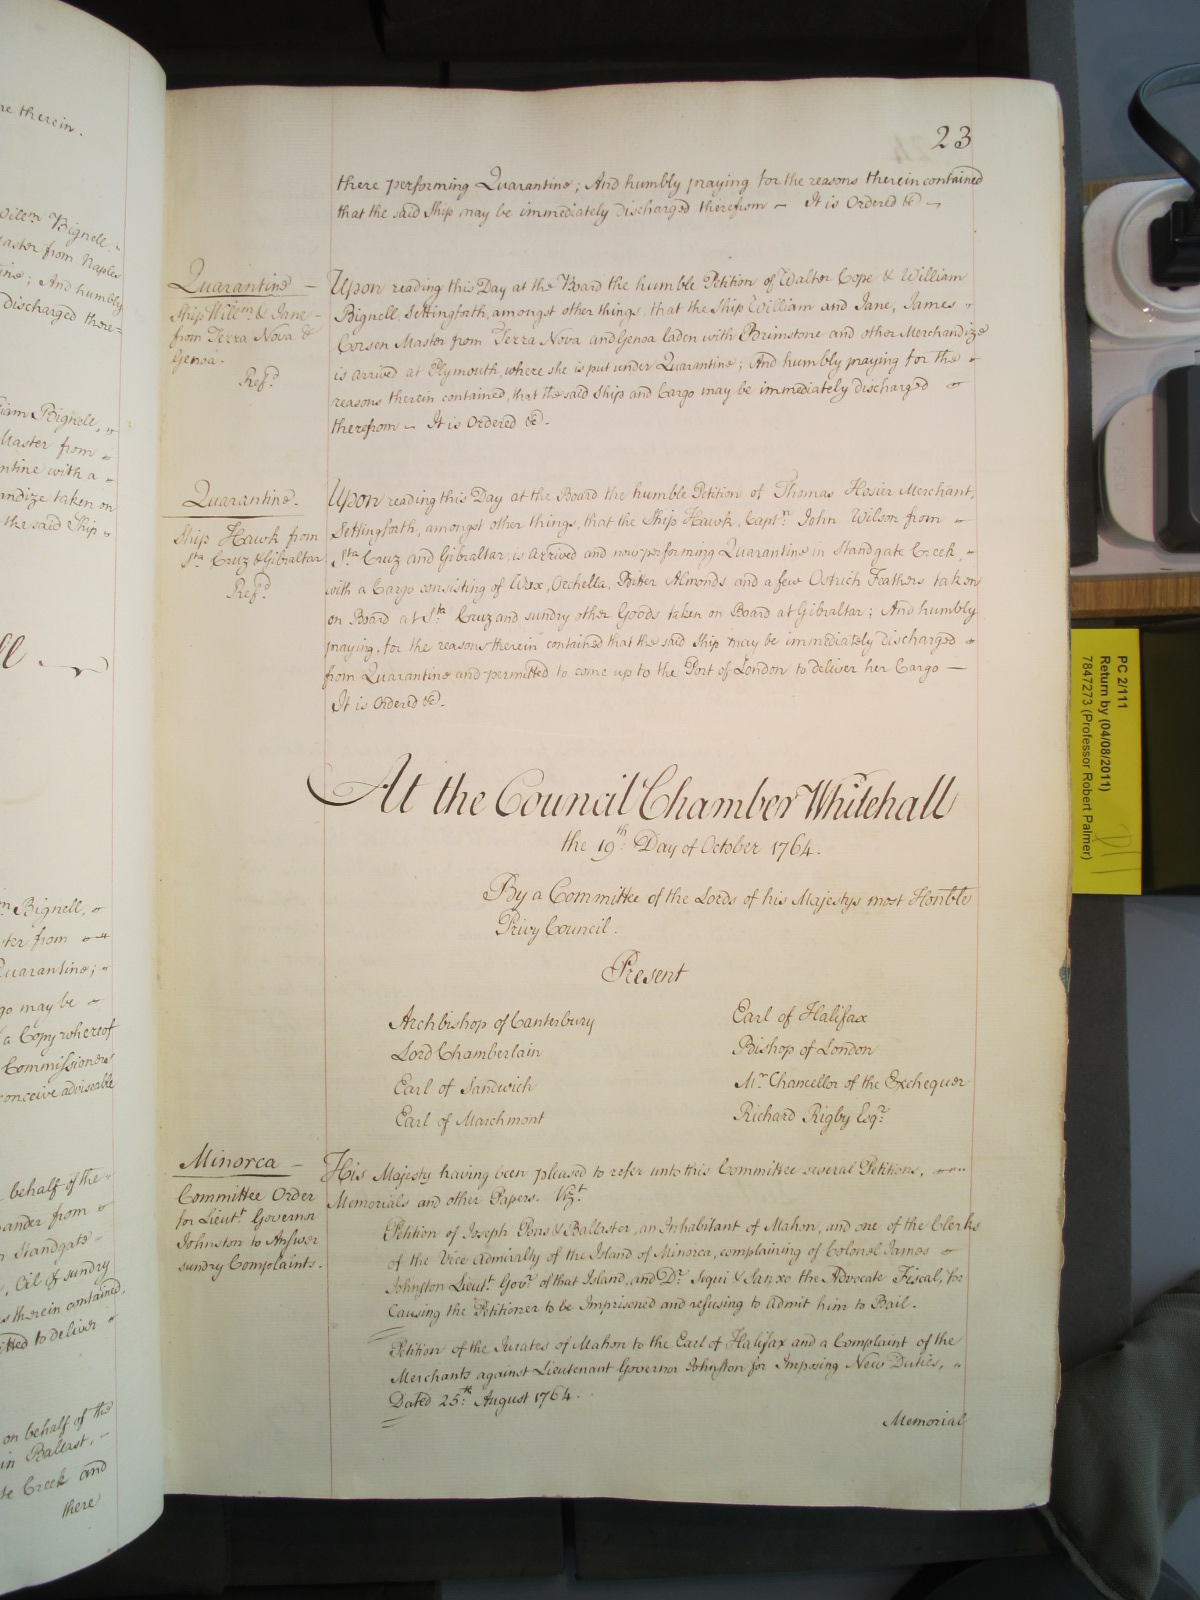 re therein.
Bignell
aster from Naples
ine; And humbly
discharged there=
iam Bignell,
Master from
ntine with a
andize taken on
the said Ship
Bignell,
ster from
Quarantine;
go may be
a Copy whereof
Commissioners
conceive adviseable
behalf of the
ander from
Standgate
Oil & sundry
s therein contained,
itted to deliver
on behalf of the
in Ballast,
te Creek and
there
23
there performing Quarantine; And humbly praying for the reasons therein contained
that the said Ship may be immediately discharged therefrom — It is Ordered &c
Quarantine —
Ship Willm. & Jane
from Terra Nova &
Genoa.
Refd.
Upon reading this Day at the Board the humble Petition of Walter Cope & William
Bignell, Settingforth, amongst other things, that the Ship William and Jane, James
Corsen Master from Terra Nova and Genoa laden with Brimstone and other Merchandize
is arrived at Plymouth, where she is put under Quarantine; And humbly praying for the
reasons therein contained, that the said Ship and Cargo may be immediately discharged
therefrom — It is Ordered &c.
Quarantine.
Ship Hawk from
Sta. Cruz & Gibraltar
Refd.
Upon reading this Day at the Board the humble Petition of Thomas Hosier Merchant,
Settingforth, amongst other things, that the Ship Hawk, Captn. John Wilson from
Sta. Cruz and Gibraltar, is arrived and now performing Quarantine in Standgate Creek,
with a Cargo consisting of Wax, Orchella, Bitter Almonds and a few Ostrich Feathers taken
on Board at Sta. Cruz and sundry other Goods taken on Board at Gibraltar; And humbly
praying, for the reasons therein contained that the said Ship may be immediately discharged
from Quarantine and permitted to come up to the Port of London to deliver her Cargo —
It is Ordered &c.
At the Council Chamber Whitehall
the 19th. Day of October 1764.
By a Committee of the Lords of his Majestys most Honble
Privy Council.
Present
Archbishop of Canterbury
Lord Chamberlain
Earl of Sandwich
Earl of Marchmont
Earl of Halifax
Bishop of London
Mr. Chancellor of the Exchequer
Richard Rigby Esqr.
Minorca —
Committee Order
for Lieut. Governor
Johnston to Answer
sundry Complaints.
His Majesty having been pleased to refer unto this Committee several Petitions,
Memorials and other Papers. Vizt.
Petition of Joseph Pons & Ballester, an Inhabitant of Mahon, and one of the Clerks
of the Vice Admiralty of the Island of Minorca, complaining of Colonel James
Johnston Lieut. Govr. of that Island, and Dr. Sequi & Sanxo the Advocate Fiscal, for
Causing the Petitioner to be Imprisoned and refusing to admit him to Bail.
Petition of the Jurates of Mahon to the Earl of Halifax and a Complaint of the
Merchants against Lieutenant Governor Johnston for Imposing New Duties,
Dated 25th. August 1764.
Memorial
PC 2/111
Return by (04/08/2011)
7847273 (Professor Robert Palmer)